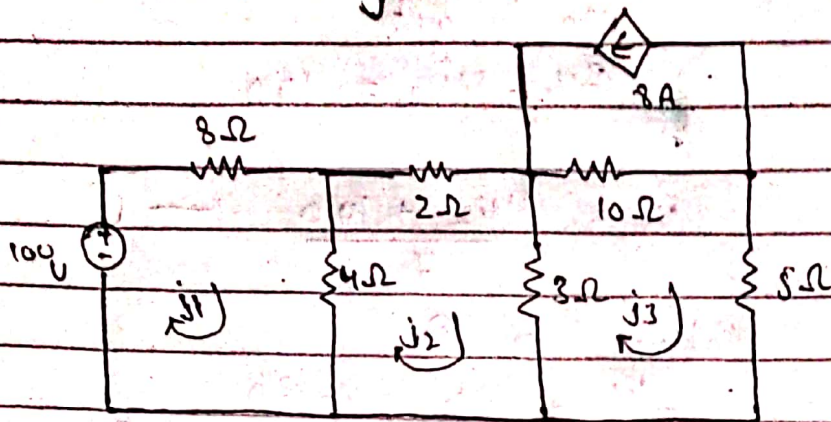 8A
8Ω
2Ω
10Ω
100V
4Ω
3Ω
5Ω
j1
j2
j3
+
-